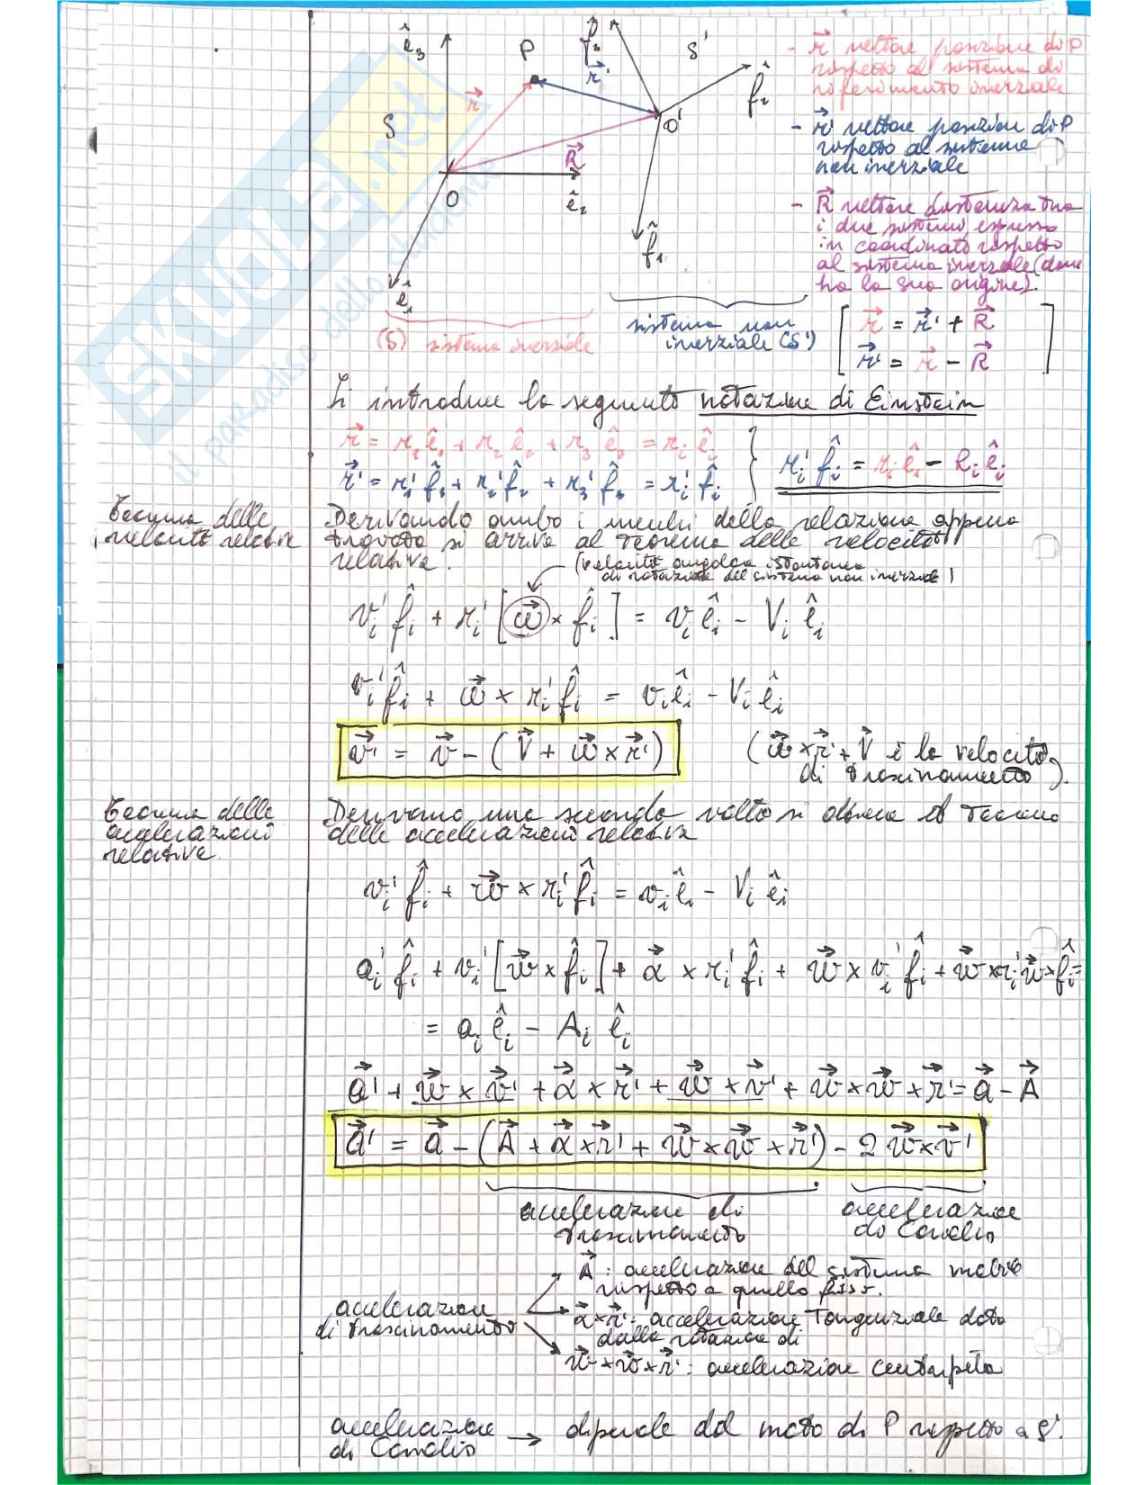 ê₃
P
f̂₃
S'
r⃗'
r⃗
f̂₂
S
O'
R⃗
O
ê₂
f̂₁
ê₁
- r⃗ vettore posizione di P
rispetto al sistema di
riferimento inerziale
- r⃗' vettore posizione di P
rispetto al sistema
non inerziale
- R⃗ vettore distanza tra
i due sistemi espresso
in coordinate rispetto
al sistema inerziale (dove
ha la sua origine).
(S) sistema inerziale
sistema non
inerziale (S')
r⃗ = r⃗' + R⃗
r⃗' = r⃗ - R⃗
Si introduce la seguente notazione di Einstein
r⃗ = r₁ê₁ + r₂ê₂ + r₃ê₃ = rᵢêᵢ
r⃗' = r₁'f̂₁ + r₂'f̂₂ + r₃'f̂₃ = rᵢ'f̂ᵢ
rᵢ'f̂ᵢ = rᵢêᵢ - Rᵢêᵢ
Teorema delle
velocità relative
Derivando ambo i membri della relazione appena
trovata si arriva al teorema delle velocità
relative.
(velocità angolare istantanea
di rotazione del sistema non inerziale)
vᵢ'f̂ᵢ + rᵢ'[ω⃗ × f̂ᵢ] = vᵢêᵢ - Vᵢêᵢ
vᵢ'f̂ᵢ + ω⃗ × rᵢ'f̂ᵢ = vᵢêᵢ - Vᵢêᵢ
v⃗' = v⃗ - (V⃗ + ω⃗ × r⃗')
(ω⃗ × r⃗' + V⃗ è la velocità
di trascinamento).
Teorema delle
accelerazioni
relative
Derivando una seconda volta si ottiene il teorema
delle accelerazioni relative
vᵢ'f̂ᵢ + ω⃗ × rᵢ'f̂ᵢ = vᵢêᵢ - Vᵢêᵢ
aᵢ'f̂ᵢ + vᵢ'[ω⃗ × f̂ᵢ] + α⃗ × rᵢ'f̂ᵢ + ω⃗ × vᵢ'f̂ᵢ + ω⃗ × rᵢ'ω⃗ × f̂ᵢ =
= aᵢêᵢ - Aᵢêᵢ
a⃗' + ω⃗ × v⃗' + α⃗ × r⃗' + ω⃗ × v⃗' + ω⃗ × ω⃗ × r⃗' = a⃗ - A⃗
a⃗' = a⃗ - (A⃗ + α⃗ × r⃗' + ω⃗ × ω⃗ × r⃗') - 2ω⃗ × v⃗'
accelerazione di
trascinamento
accelerazione
di Coriolis
accelerazione
di trascinamento
A⃗: accelerazione del sistema mobile
rispetto a quello fisso.
α⃗ × r⃗': accelerazione tangenziale data
dalla rotazione di
ω⃗ × ω⃗ × r⃗': accelerazione centripeta
accelerazione
di Coriolis
→ dipende dal moto di P rispetto a S'.
SKUOLA.net
il paradiso dello studente